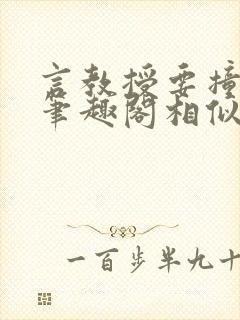 言教授要撞
筆趣閣相似
一百步半九十